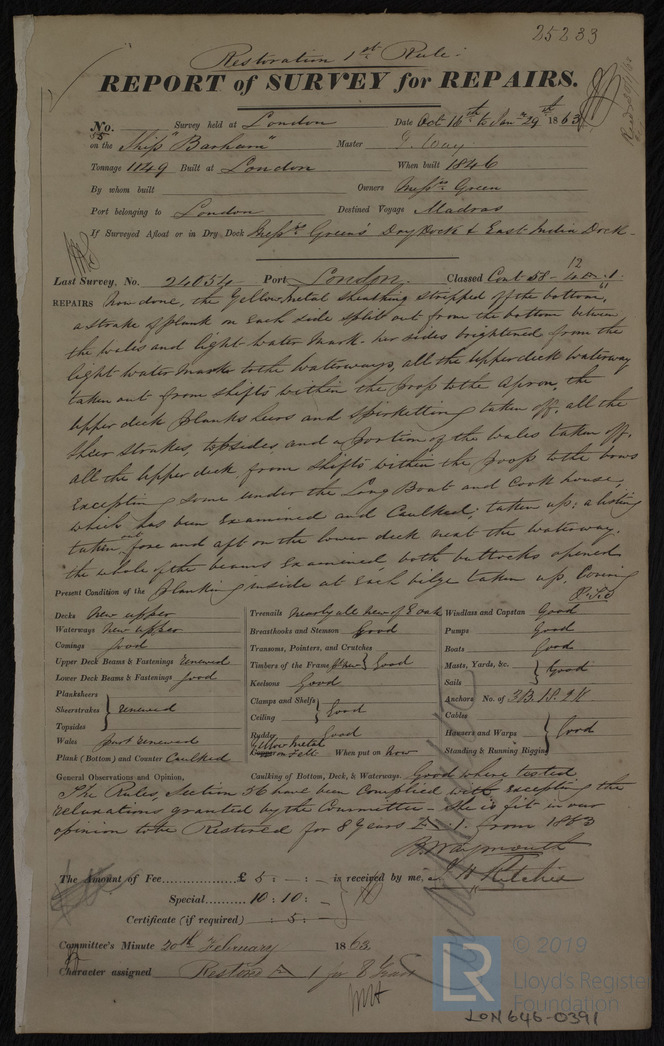 25233
Restoration 1st Rule.
REPORT of SURVEY for REPAIRS.
No. Survey held at London Date Oct 16th to Jany 29th 1863
on the Ship "Barham" Master J. Way
Tonnage 1149 Built at London When built 1846
By whom built Owners Messrs Green
Port belonging to London Destined Voyage Madras
If Surveyed Afloat or in Dry Dock Messrs Green's Dry Dock & East India Dock
Last Survey, No. 24054 Port London. Classed Cont 58-
REPAIRS Now done, the Yellow Metal sheathing stripped off the bottom,
a strake of plank on each side split out from the bottom between
the wales and light water mark. her sides brightened from the
light water mark to the waterways, all the upper deck waterway
taken out from shifts within the poop to the Apron, the
upper deck planksheers and spirketting taken off, all the
sheer strakes, topsides, and a portion of the wales taken off.
all the Upper deck, from shifts within the poop to the bows
Excepting some under the Long Boat and Cook house,
which has been Examined and Caulked, taken up; a listing
taken out fore and aft on the lower deck next the waterway.
the whole of the beams Examined, both buttocks opened
Present Condition of the planking inside at each bilge taken up,
P.T.O
Decks New upper
Waterways New upper
Comings Good
Upper Deck Beams & Fastenings Renewed
Lower Deck Beams & Fastenings Good
Planksheers
Sheerstrakes } Renewed
Topsides
Wales part renewed
Plank (Bottom) and Counter Caulked
Treenails Nearly all new of E oak
Breasthooks and Stemson Good
Transoms, Pointers, and Crutches
Timbers of the Frame } Good
Keelsons Good
Clamps and Shelfs
Ceiling } Good
Rudder Good
Yellow Metal on Felt When put on Now
Windlass and Capstan Good
Pumps Good
Boats Good
Masts, Yards, &c.
Sails } Good
Anchors No. of 3B. 1S. 2K
Cables
Hawsers and Warps } Good
Standing & Running Rigging
General Observations and Opinion, Caulking of Bottom, Deck, & Waterways. Good where tested
The Rules, Section 56 have been complied with excepting the
relaxations granted by the Committee - She is fit in our
opinion to be Restored for 8 Years from 1863
B. Waymouth
The Amount of Fee.................. £ 5 : - : - is received by me,
J H Ritchie
Special......... 10 : 10 : -
Certificate (if required) : 5 : -
Committee's Minute 20th February 1863
Character assigned Restored A 1 for 8 Years
© 2019
LR
Lloyd's Register
Foundation
LON 646-0391